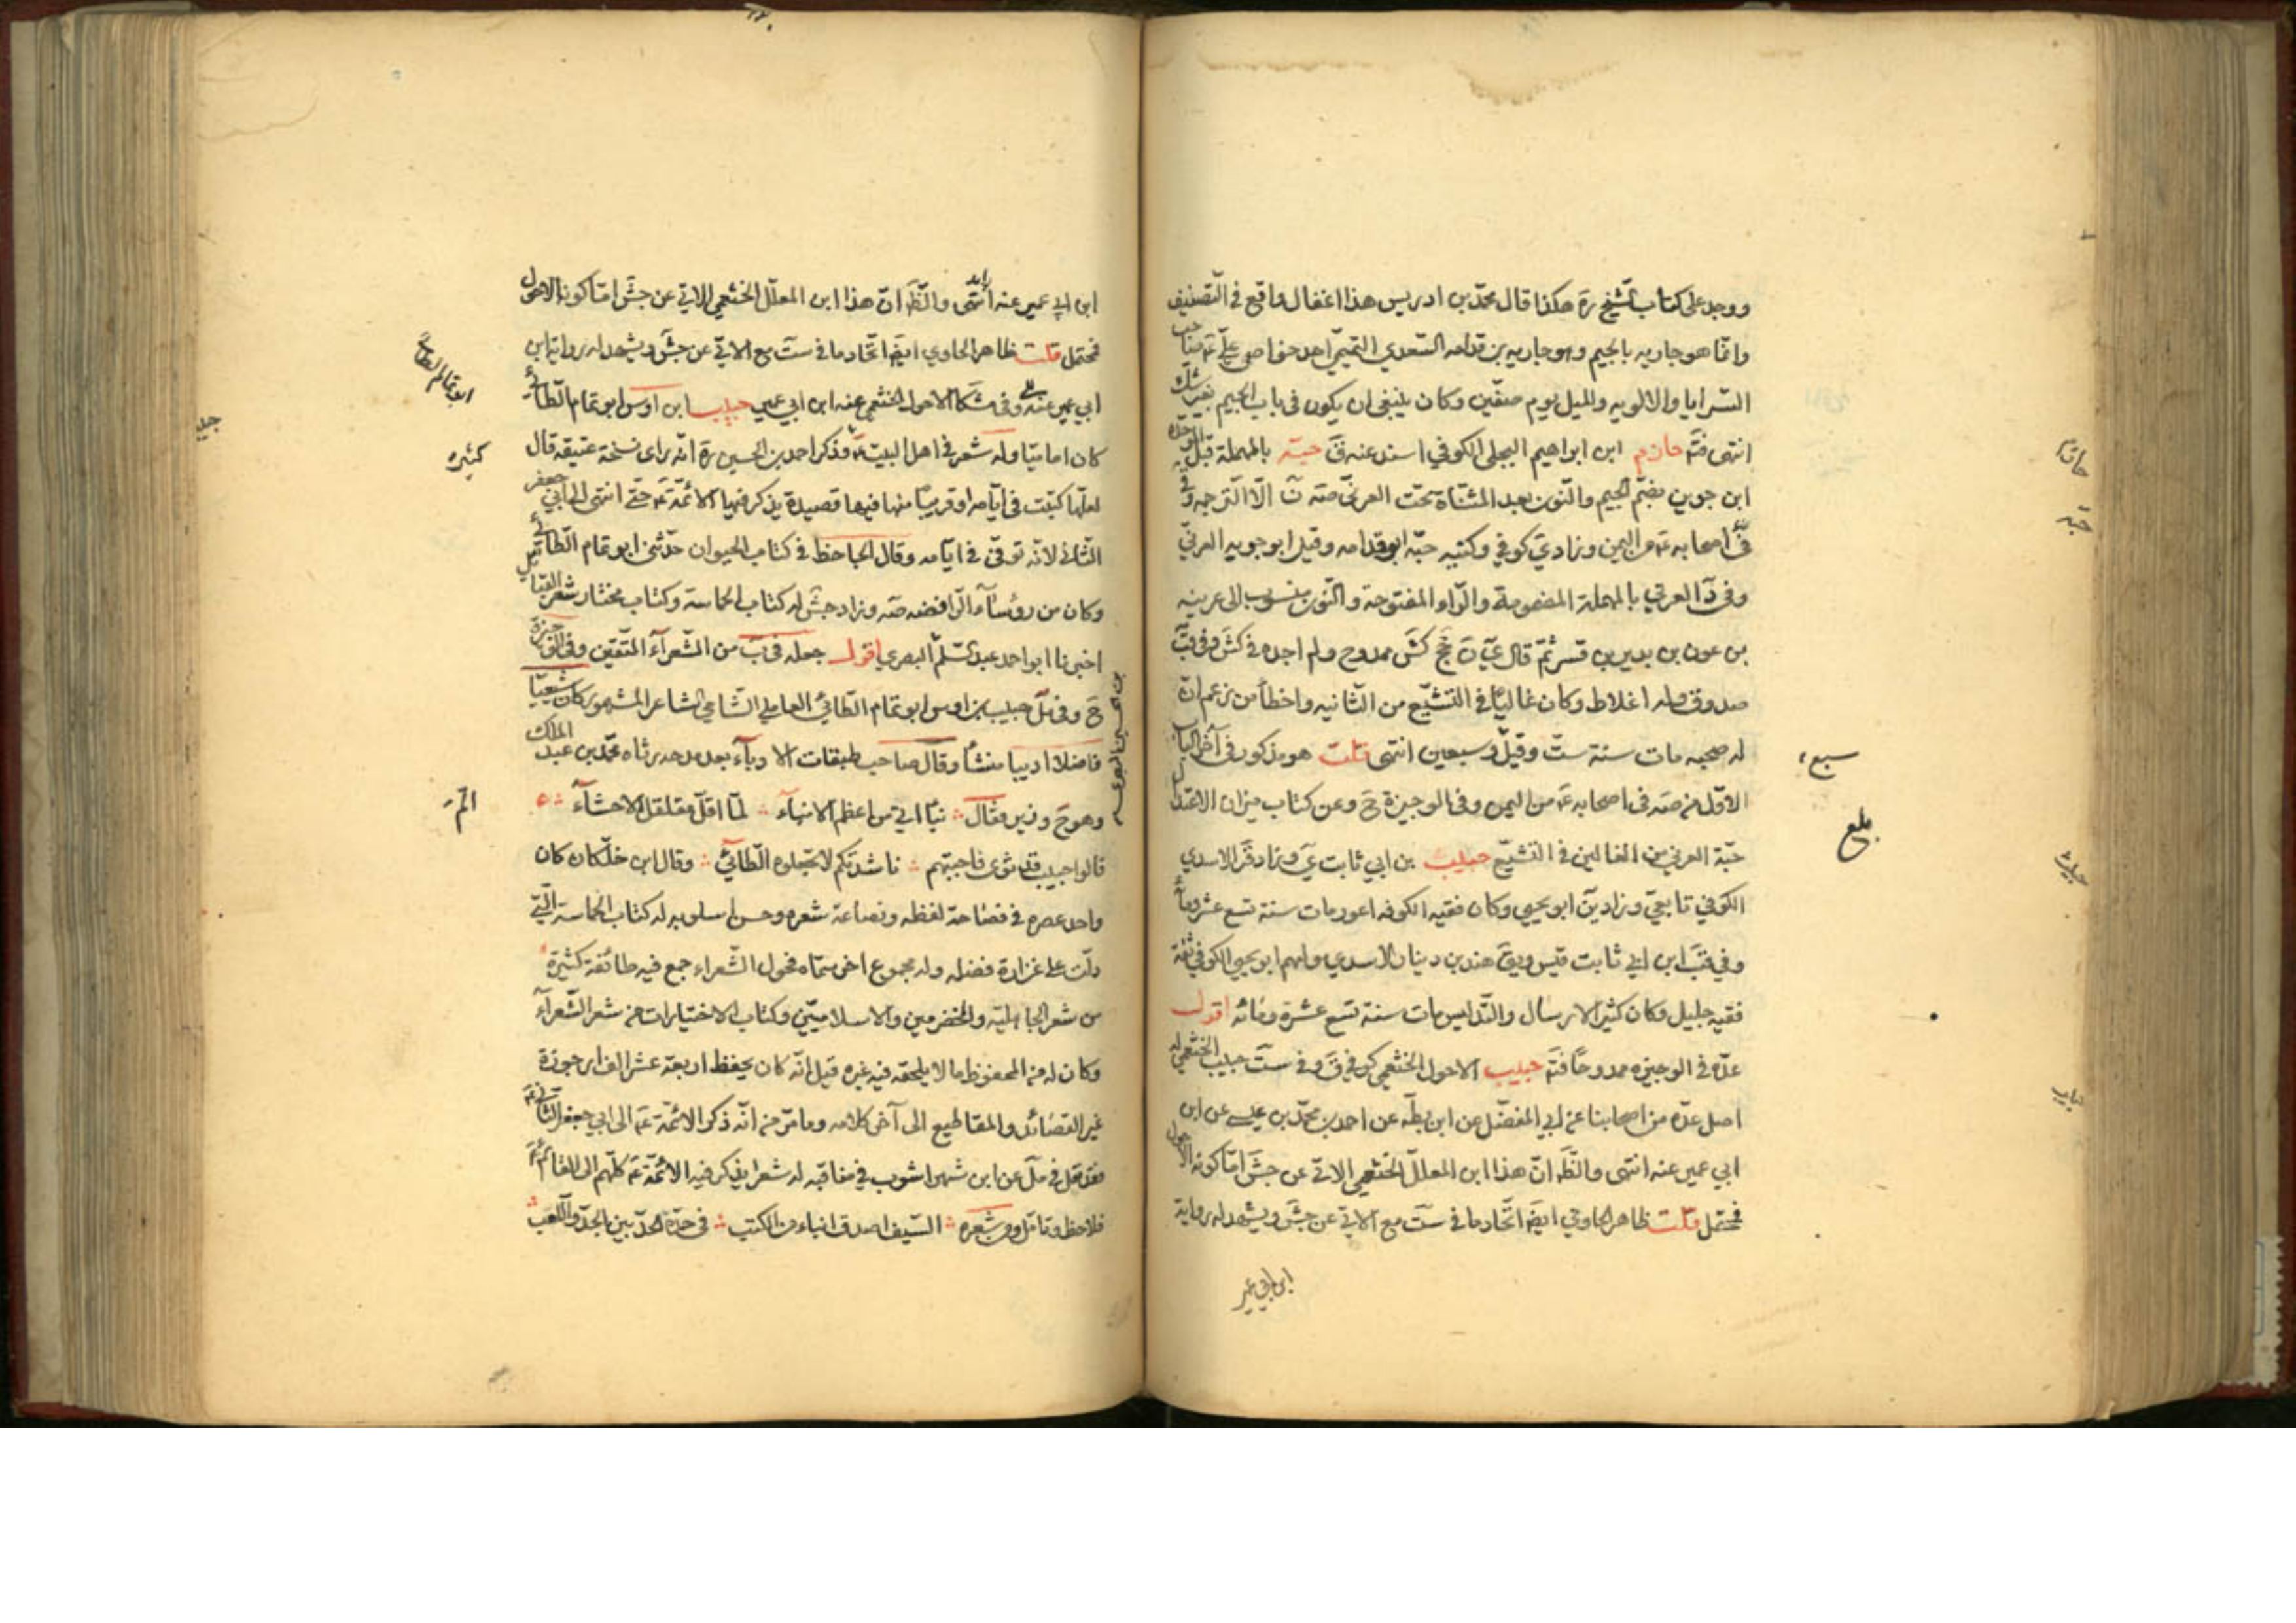 ووجد على كتاب الشيخ ره هكذا قال محمد بن ادريس هذا اغفال واقع في التصنيف
وانما هو جاريه بالجيم وهو جاريه بن قدامه السعدي التميمي احد خواص علي ع صاحب
السرايا والالويه والخيل يوم صفين وكان ينبغي ان يكون في باب الجيم بغير شك
انتهى فتم حازم ابن ابراهيم البجلي الكوفي اسند عنه ق حبة بالمهملة قبل الموحدة
ابن جوين بضم الجيم والنون بعد المثناة تحت العرني صه ن الا الترجمه وفي
اصحابه ع من اليمن وزاد ي كوفي وكنيه حبه ابو قدامه وقيل ابو جويه العرني
وفي د العرني بالمهملة المضمومة والراء المفتوحة والنون منسوب الى عرينه
بن عرن بن بدير بن قسر ثم قال كش ممدوح ولم اجده في كش وفي قب
صدوق وله اغلاط وكان غاليا في التشيع من الثانيه واخطأ من زعم ان
له صحبه مات سنة ست وقيل وسبعين انتهى قلت هو مذكور في آخر الباب
الاول من صه في اصحابه ع من اليمن وفي الوجيزة ح وعن كتاب ميزان الاعتدال
حبة العرني من الغالين في التشيع حبيب بن ابي ثابت ي وزاد ق الاسدي
الكوفي تابعي وزاد ين ابو يحيى وكان فقيه الكوفه اعور مات سنة تسع عشر ومأة
وفي قب ابن ابي ثابت قيس ويق هند بن دينار الاسدي ولهم ابو يحيى الكوفي ثقة
فقيه جليل وكان كثير الارسال والتدليس مات سنة تسع عشرة ومائه اقول
عده في الوجيزه ممدوحا فتم حبيب الاحول الخثعمي كوفي ق وفي ست حبيب الخثعمي له
اصل عدة من اصحابنا عن ابي المفضل عن ابن بطه عن احمد بن محمد بن عيسى عن ابن
ابي عمير عنه انتهى والظ ان هذا ابن المعلل الخثعمي الاتي عن جش اما كونه الاحول
فمحتمل قلت ظاهر الحاوي ايض اتحاد ما في ست مع الاتي عن جش ويشهد له رواية
ابن ابي عمير
سبع
بلغ
ابن ابي عمير عنه انتهى والظ ان هذا ابن المعلل الخثعمي الاتي عن جش اما كونه الاحول
فمحتمل قلت ظاهر الحاوي ايض اتحاد ما في ست مع الاتي عن جش ويشهد له رواية ابن
ابي عمير عنه وفي مشكا الاحول الخثعمي عنه ابن ابي عمير حبيب ابن اوس ابو تمام الطائي
كان اماميا وله شعر في اهل البيت ع وذكر احمد بن الحسين ره انه راى نسخة عتيقه قال
لعلها كتبت في ايامه او قريبا منها فيها قصيدة يذكر فيها الائمة ع حتى انتهى الى ابي جعفر
الثاني لانه توفي في ايامه وقال الجاحظ في كتاب الحيوان حدثني ابو تمام الطائي
وكان من رؤساء الرافضه صه وزاد جش له كتاب الحماسة وكتاب مختار شعر القبايل
اخبرنا ابو احمد عبد السلم البصري اقول جعله في ب من الشعراء المتقين وفي الوجيزة
ح وفي مل حبيب بن اوس ابو تمام الطائي العاملي الشامي الشاعر المشهور كان شيعيا
فاضلا اديبا منشأ وقال صاحب طبقات الادباء بعد مدحه رثاه محمد بن عبد الملك
وهو ح وزير فقال نبأ اتى من اعظم الانباء لما اقل مقلقل الاحشاء
قالوا حبيب قد ثوى فاجبتهم ناشدتكم لا تجعلوه الطائي وقال ابن خلكان كان
واحد عصره في فصاحة لفظه ونصاعة شعره وحسن اسلوبه له كتاب الحماسة التي
دلت على غزارة فضله وله مجموع اخر سماه فحول الشعراء جمع فيه طائفة كثيرة
من شعر الجاهلية والمخضرمين والاسلاميين وكتاب الاختيارات من شعر الشعراء
وكان له من المحفوظ ما لا يلحقه فيه غيره قيل انه كان يحفظ اربعة عشر الف ارجوزة
غير القصائد والمقاطيع الى آخر كلامه وما مر من انه ذكر الائمة ع الى ابي جعفر الثاني ع
فقد نقل في مل عن ابن شهراشوب في مناقبه له شعرا يذكر فيه الائمة ع كلهم الى القائم ع
فلاحظ وتامل ومن شعره السيف اصدق انباء من الكتب في حده الحد بين الجد واللعب
كثيره